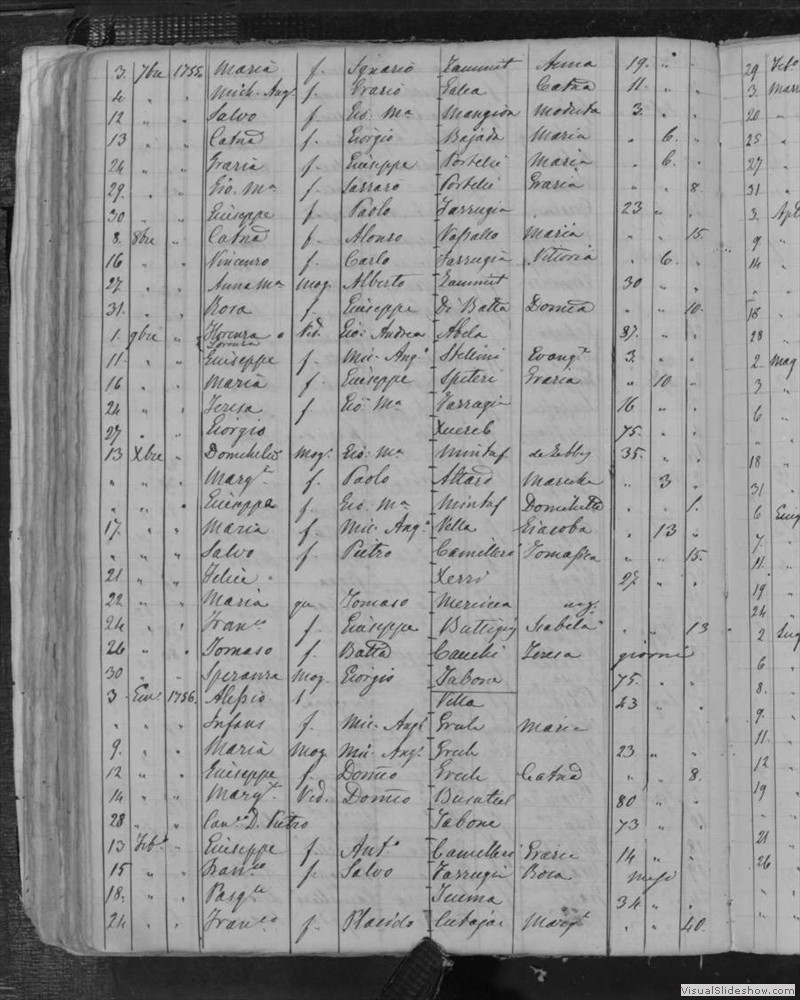 3. 7bre 1755 Maria f. Ignazio Zammit Anna 19. " .
4 " " Mich. Ang. f. Grazio Galea Catna 11. " .
12 " " Salvo f. Gio. Ma Mangion Modesta 3. " .
13 " " Catna f. Giorgio Bajada Maria . 6. .
24 " " Grazia f. Giuseppe Portelli Maria . 6. .
29. " " Gio. Ma f. Portelli Grazia . . 8.
30 " " Giuseppe f. Paolo Farrugia 23 " .
8. 8bre " Catna f. Alonso Vassallo Maria . . 15.
16 " " Vincenzo f. Carlo Farrugia Vittoria . 6. .
27. " " Anna Ma mog. Alberto Zammit 30 " .
31. " " Rosa f. Giuseppe Di Batta Domca . . 10.
1. 9bre " Florenza o Lorenza Ved. Gio: Andrea Abela 87. " .
11. " " Giuseppe f. Mic. Ang. Stellini Evang. 3. " .
16 " " Maria f. Giuseppe Spiteri Grazia " 10 .
24 " " Teresa f. Gio. Ma Farrugia 16 " .
27. " " Giorgio Xuereb 75. " .
13 Xbre " mog. Gio. Ma Mintuf 35. " .
" " " Marg.a f. Paolo Attard " 3 .
" " " Giuseppe f. Gio. Ma Mintuf . . 1.
17. " " Maria f. Mic. Ang. Vella Giacoba . 13 "
" " " Salvo f. Pietro Camilleri " " 15.
21 " " Felice . Xerri 27. .
22 " " Maria Tomaso Mercieca
24 " " Fran.co f. Giuseppe Buttigig Isabela . " 13
26 " " Tomaso f. Batta Cauchi Teresa giorni
30 " " Speranza mog. Giorgio Tabona 75. " .
3 Gen. 1756. Alessio Vella 43 " .
" . . Infans f. Mic. Ang. Grech Maria
9. " . Maria mog. Mic. Ang. Grech 23 " "
12 " . Giuseppe f. Domco Grech Catna " . 8.
14 " " Marg.a Ved. Domco Busuttil 80 " .
28 " " Can.co D. Pietro Tabone 73 " .
13 Feb. " Giuseppe f. Ant.o Camilleri Grazia 14 " .
15 " " Fran.co f. Salvo Farrugia Rosa mesi
18. " " Pasq.le 34 " .
24 " " Fran.co f. Placido Cutajar Marg.a " . 40.
29 Feb.
3. Mar
20 "
25 "
27 "
31 "
3. Apl
9. "
14 "
18 "
28 "
2. Mag
3 "
6 "
18 "
31 "
6 Giug
7. "
11. "
19 "
24 "
2 Lug
6 "
8. "
9. "
11. "
12 "
19 "
21 "
26 "
VisualSlideshow.com